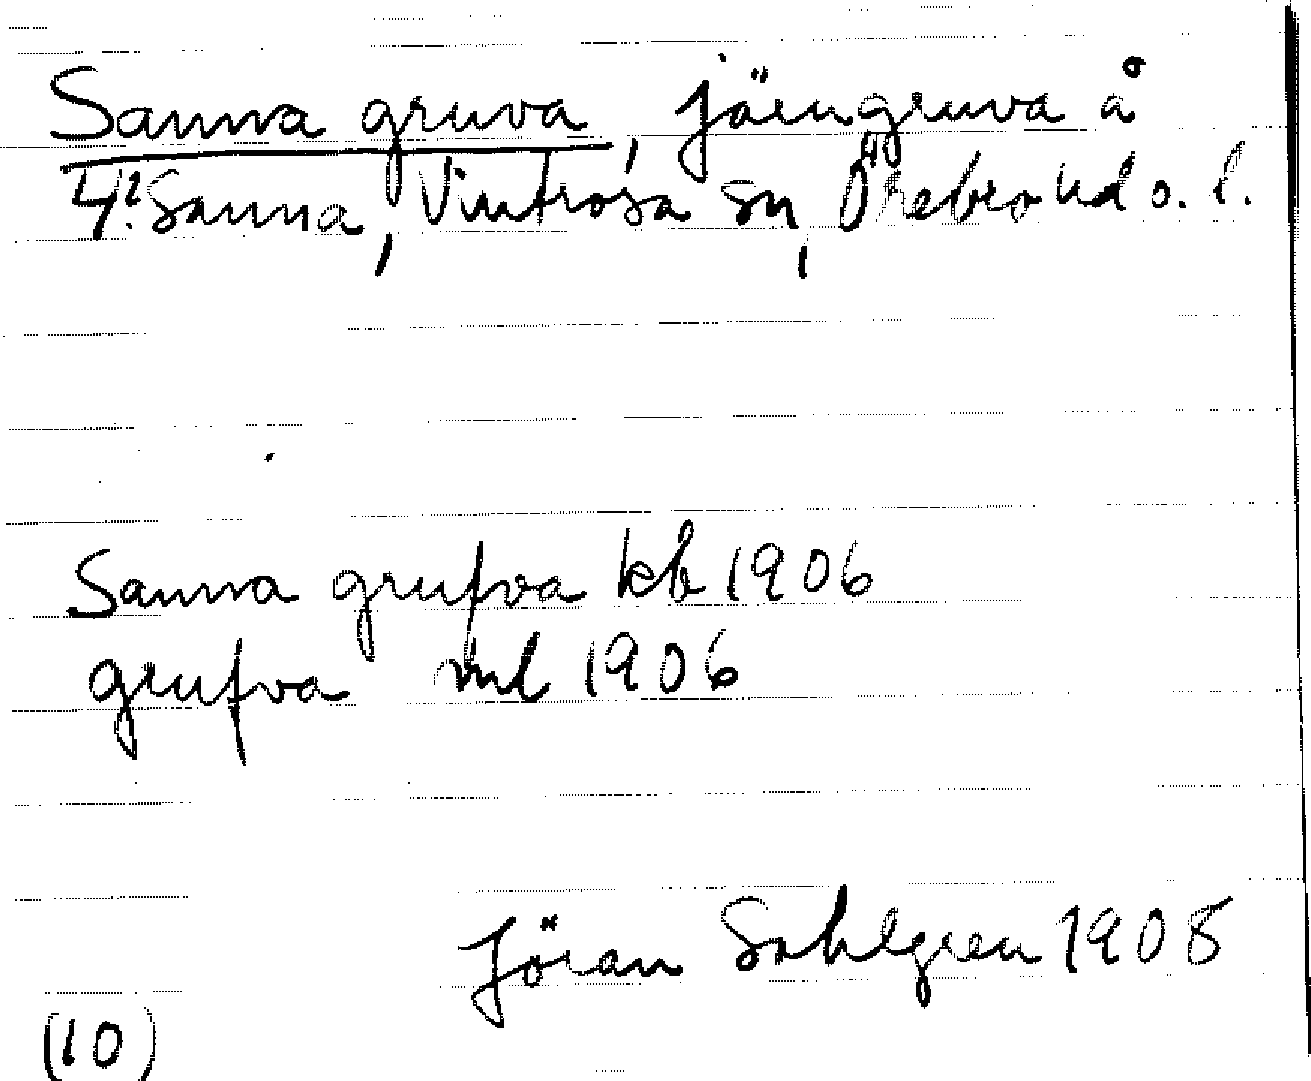 Sanna gruva, järngruva å
4:2 Sanna, Vintrosa sn, Örebro hd o. l.
Sanna grufva kb 1906
grufva ml 1906
Jöran Sahlgren 1908
(10)